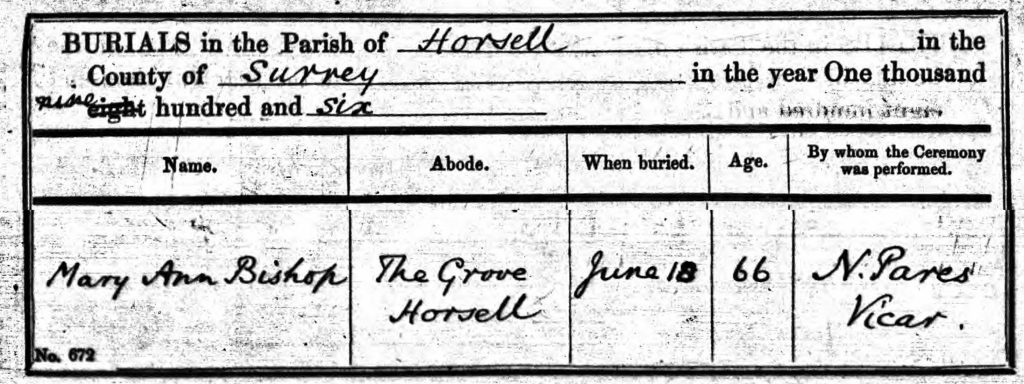 BURIALS in the Parish of Horsell in the
County of Surrey in the year One thousand
nine eight hundred and six
Name. Abode. When buried. Age. By whom the Ceremony was performed.
Mary Ann Bishop The Grove Horsell June 18 66 N. Pares Vicar.
No. 672